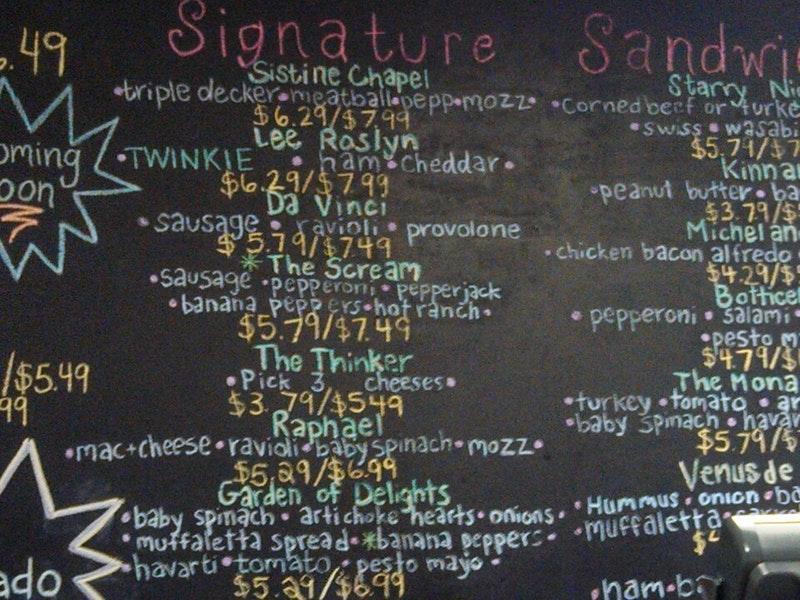 Signature Sandwi
.49
oming
oon
/$5.49
99
ado
Sistine Chapel
•triple decker•meatball•pepp•mozz•
$6.29/$7.99
Lee Roslyn
•TWINKIE • ham•cheddar•
$6.29/$7.99
Da Vinci
•sausage • ravioli • provolone
$5.79/$7.49
*The Scream
•sausage •pepperoni• pepperjack
•banana peppers•hot ranch•
$5.79/$7.49
The Thinker
•Pick 3 cheeses•
$3.79/$5.49
Raphael
•mac+cheese•ravioli•baby spinach•mozz•
$5.29/$6.99
Garden of Delights
•baby spinach• artichoke hearts• onions•
•muffaletta spread•*banana peppers•
•havarti•tomato •pesto mayo•
$5.29/$6.99
Starry Ni
•Corned beef or turke
•swiss • wasabi
$5.79/$7
Kinna
•peanut butter• ba
$3.79/$
Michelan
•chicken bacon alfredo
$4.29/$
Bottice
• pepperoni • salami •
•pesto m
$4.79/$
The Mona
•turkey •tomato • ar
•baby spinach• havar
$5.79/$
Venus de
•Hummus • onion•ba
•muffaletta
$
•ham•b